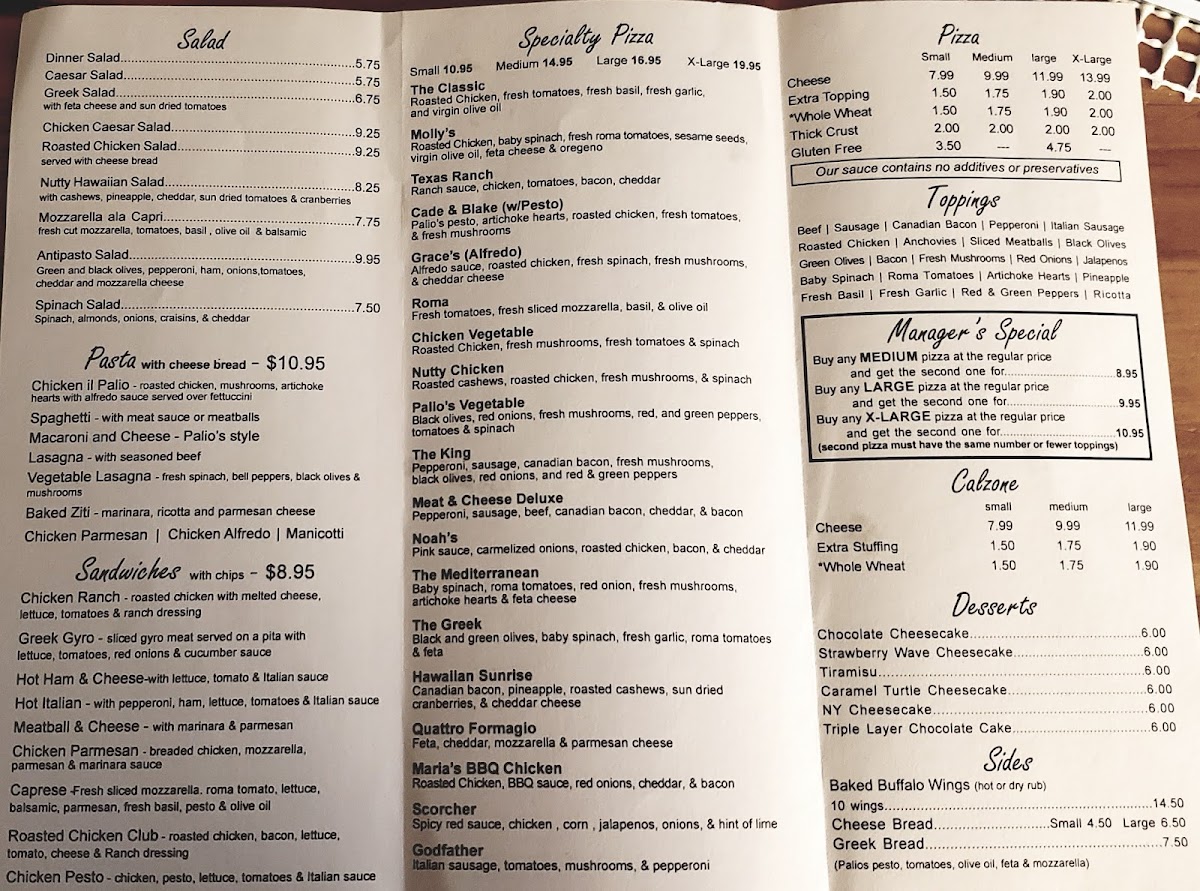 Salad
Dinner Salad...5.75
Caesar Salad...5.75
Greek Salad...6.75
with feta cheese and sun dried tomatoes
Chicken Caesar Salad...9.25
Roasted Chicken Salad...9.25
served with cheese bread
Nutty Hawaiian Salad...8.25
with cashews, pineapple, cheddar, sun dried tomatoes & cranberries
Mozzarella ala Capri...7.75
fresh cut mozzarella, tomatoes, basil , olive oil & balsamic
Antipasto Salad...9.95
Green and black olives, pepperoni, ham, onions,tomatoes,
cheddar and mozzarella cheese
Spinach Salad...7.50
Spinach, almonds, onions, craisins, & cheddar
Pasta with cheese bread - $10.95
Chicken il Palio - roasted chicken, mushrooms, artichoke
hearts with alfredo sauce served over fettuccini
Spaghetti - with meat sauce or meatballs
Macaroni and Cheese - Palio's style
Lasagna - with seasoned beef
Vegetable Lasagna - fresh spinach, bell peppers, black olives &
mushrooms
Baked Ziti - marinara, ricotta and parmesan cheese
Chicken Parmesan | Chicken Alfredo | Manicotti
Sandwiches with chips - $8.95
Chicken Ranch - roasted chicken with melted cheese,
lettuce, tomatoes & ranch dressing
Greek Gyro - sliced gyro meat served on a pita with
lettuce, tomatoes, red onions & cucumber sauce
Hot Ham & Cheese-with lettuce, tomato & Italian sauce
Hot Italian - with pepperoni, ham, lettuce, tomatoes & Italian sauce
Meatball & Cheese - with marinara & parmesan
Chicken Parmesan - breaded chicken, mozzarella,
parmesan & marinara sauce
Caprese -Fresh sliced mozzarella, roma tomato, lettuce,
balsamic, parmesan, fresh basil, pesto & olive oil
Roasted Chicken Club - roasted chicken, bacon, lettuce,
tomato, cheese & Ranch dressing
Chicken Pesto - chicken, pesto, lettuce, tomatoes & Italian sauce
Specialty Pizza
Small 10.95 Medium 14.95 Large 16.95 X-Large 19.95
The Classic
Roasted Chicken, fresh tomatoes, fresh basil, fresh garlic,
and virgin olive oil
Molly's
Roasted Chicken, baby spinach, fresh roma tomatoes, sesame seeds,
virgin olive oil, feta cheese & oregeno
Texas Ranch
Ranch sauce, chicken, tomatoes, bacon, cheddar
Cade & Blake (w/Pesto)
Palio's pesto, artichoke hearts, roasted chicken, fresh tomatoes,
& fresh mushrooms
Grace's (Alfredo)
Alfredo sauce, roasted chicken, fresh spinach, fresh mushrooms,
& cheddar cheese
Roma
Fresh tomatoes, fresh sliced mozzarella, basil, & olive oil
Chicken Vegetable
Roasted Chicken, fresh mushrooms, fresh tomatoes & spinach
Nutty Chicken
Roasted cashews, roasted chicken, fresh mushrooms, & spinach
Palio's Vegetable
Black olives, red onions, fresh mushrooms, red, and green peppers,
tomatoes & spinach
The King
Pepperoni, sausage, canadian bacon, fresh mushrooms,
black olives, red onions, and red & green peppers
Meat & Cheese Deluxe
Pepperoni, sausage, beef, canadian bacon, cheddar, & bacon
Noah's
Pink sauce, carmelized onions, roasted chicken, bacon, & cheddar
The Mediterranean
Baby spinach, roma tomatoes, red onion, fresh mushrooms,
artichoke hearts & feta cheese
The Greek
Black and green olives, baby spinach, fresh garlic, roma tomatoes
& feta
Hawaiian Sunrise
Canadian bacon, pineapple, roasted cashews, sun dried
cranberries, & cheddar cheese
Quattro Formagio
Feta, cheddar, mozzarella & parmesan cheese
Maria's BBQ Chicken
Roasted Chicken, BBQ sauce, red onions, cheddar, & bacon
Scorcher
Spicy red sauce, chicken , corn , jalapenos, onions, & hint of lime
Godfather
Italian sausage, tomatoes, mushrooms, & pepperoni
Pizza
Small Medium large X-Large
Cheese 7.99 9.99 11.99 13.99
Extra Topping 1.50 1.75 1.90 2.00
*Whole Wheat 1.50 1.75 1.90 2.00
Thick Crust 2.00 2.00 2.00 2.00
Gluten Free 3.50 --- 4.75 ---
Our sauce contains no additives or preservatives
Toppings
Beef | Sausage | Canadian Bacon | Pepperoni | Italian Sausage
Roasted Chicken | Anchovies | Sliced Meatballs | Black Olives
Green Olives | Bacon | Fresh Mushrooms | Red Onions | Jalapenos
Baby Spinach | Roma Tomatoes | Artichoke Hearts | Pineapple
Fresh Basil | Fresh Garlic | Red & Green Peppers | Ricotta
Manager's Special
Buy any MEDIUM pizza at the regular price
and get the second one for...8.95
Buy any LARGE pizza at the regular price
and get the second one for...9.95
Buy any X-LARGE pizza at the regular price
and get the second one for...10.95
(second pizza must have the same number or fewer toppings)
Calzone
small medium large
Cheese 7.99 9.99 11.99
Extra Stuffing 1.50 1.75 1.90
*Whole Wheat 1.50 1.75 1.90
Desserts
Chocolate Cheesecake...6.00
Strawberry Wave Cheesecake...6.00
Tiramisu...6.00
Caramel Turtle Cheesecake...6.00
NY Cheesecake...6.00
Triple Layer Chocolate Cake...6.00
Sides
Baked Buffalo Wings (hot or dry rub)
10 wings...14.50
Cheese Bread...Small 4.50 Large 6.50
Greek Bread...7.50
(Palios pesto, tomatoes, olive oil, feta & mozzarella)